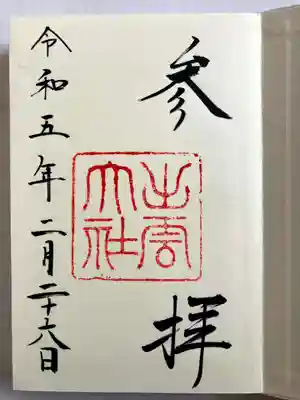 参拝
出雲
大社
令和五年二月二十六日